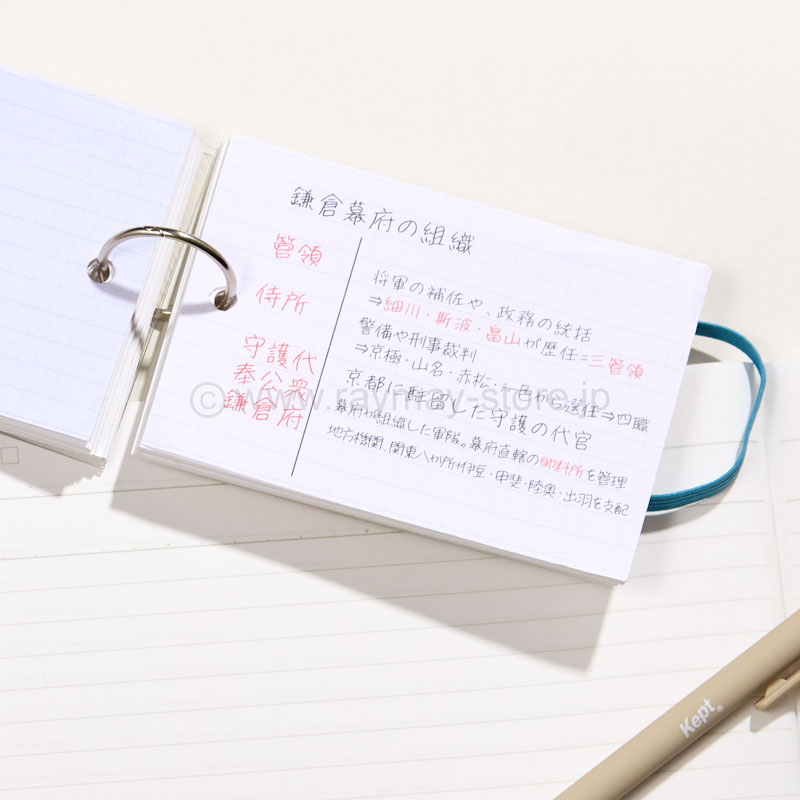 鎌倉幕府の組織
管領
将軍の補佐や、政務の統括
⇒細川・斯波・畠山が歴任=三管領
侍所
警備や刑事裁判
⇒京極・山名・赤松・一色から選任⇒四職
守護代
京都に駐留した守護の代官
奉公衆
幕府が組織した軍隊。幕府直轄の御料所を管理
鎌倉府
地方機関、関東八か所や伊豆・甲斐・陸奥・出羽を支配
© www.raymay-store.jp
Kept